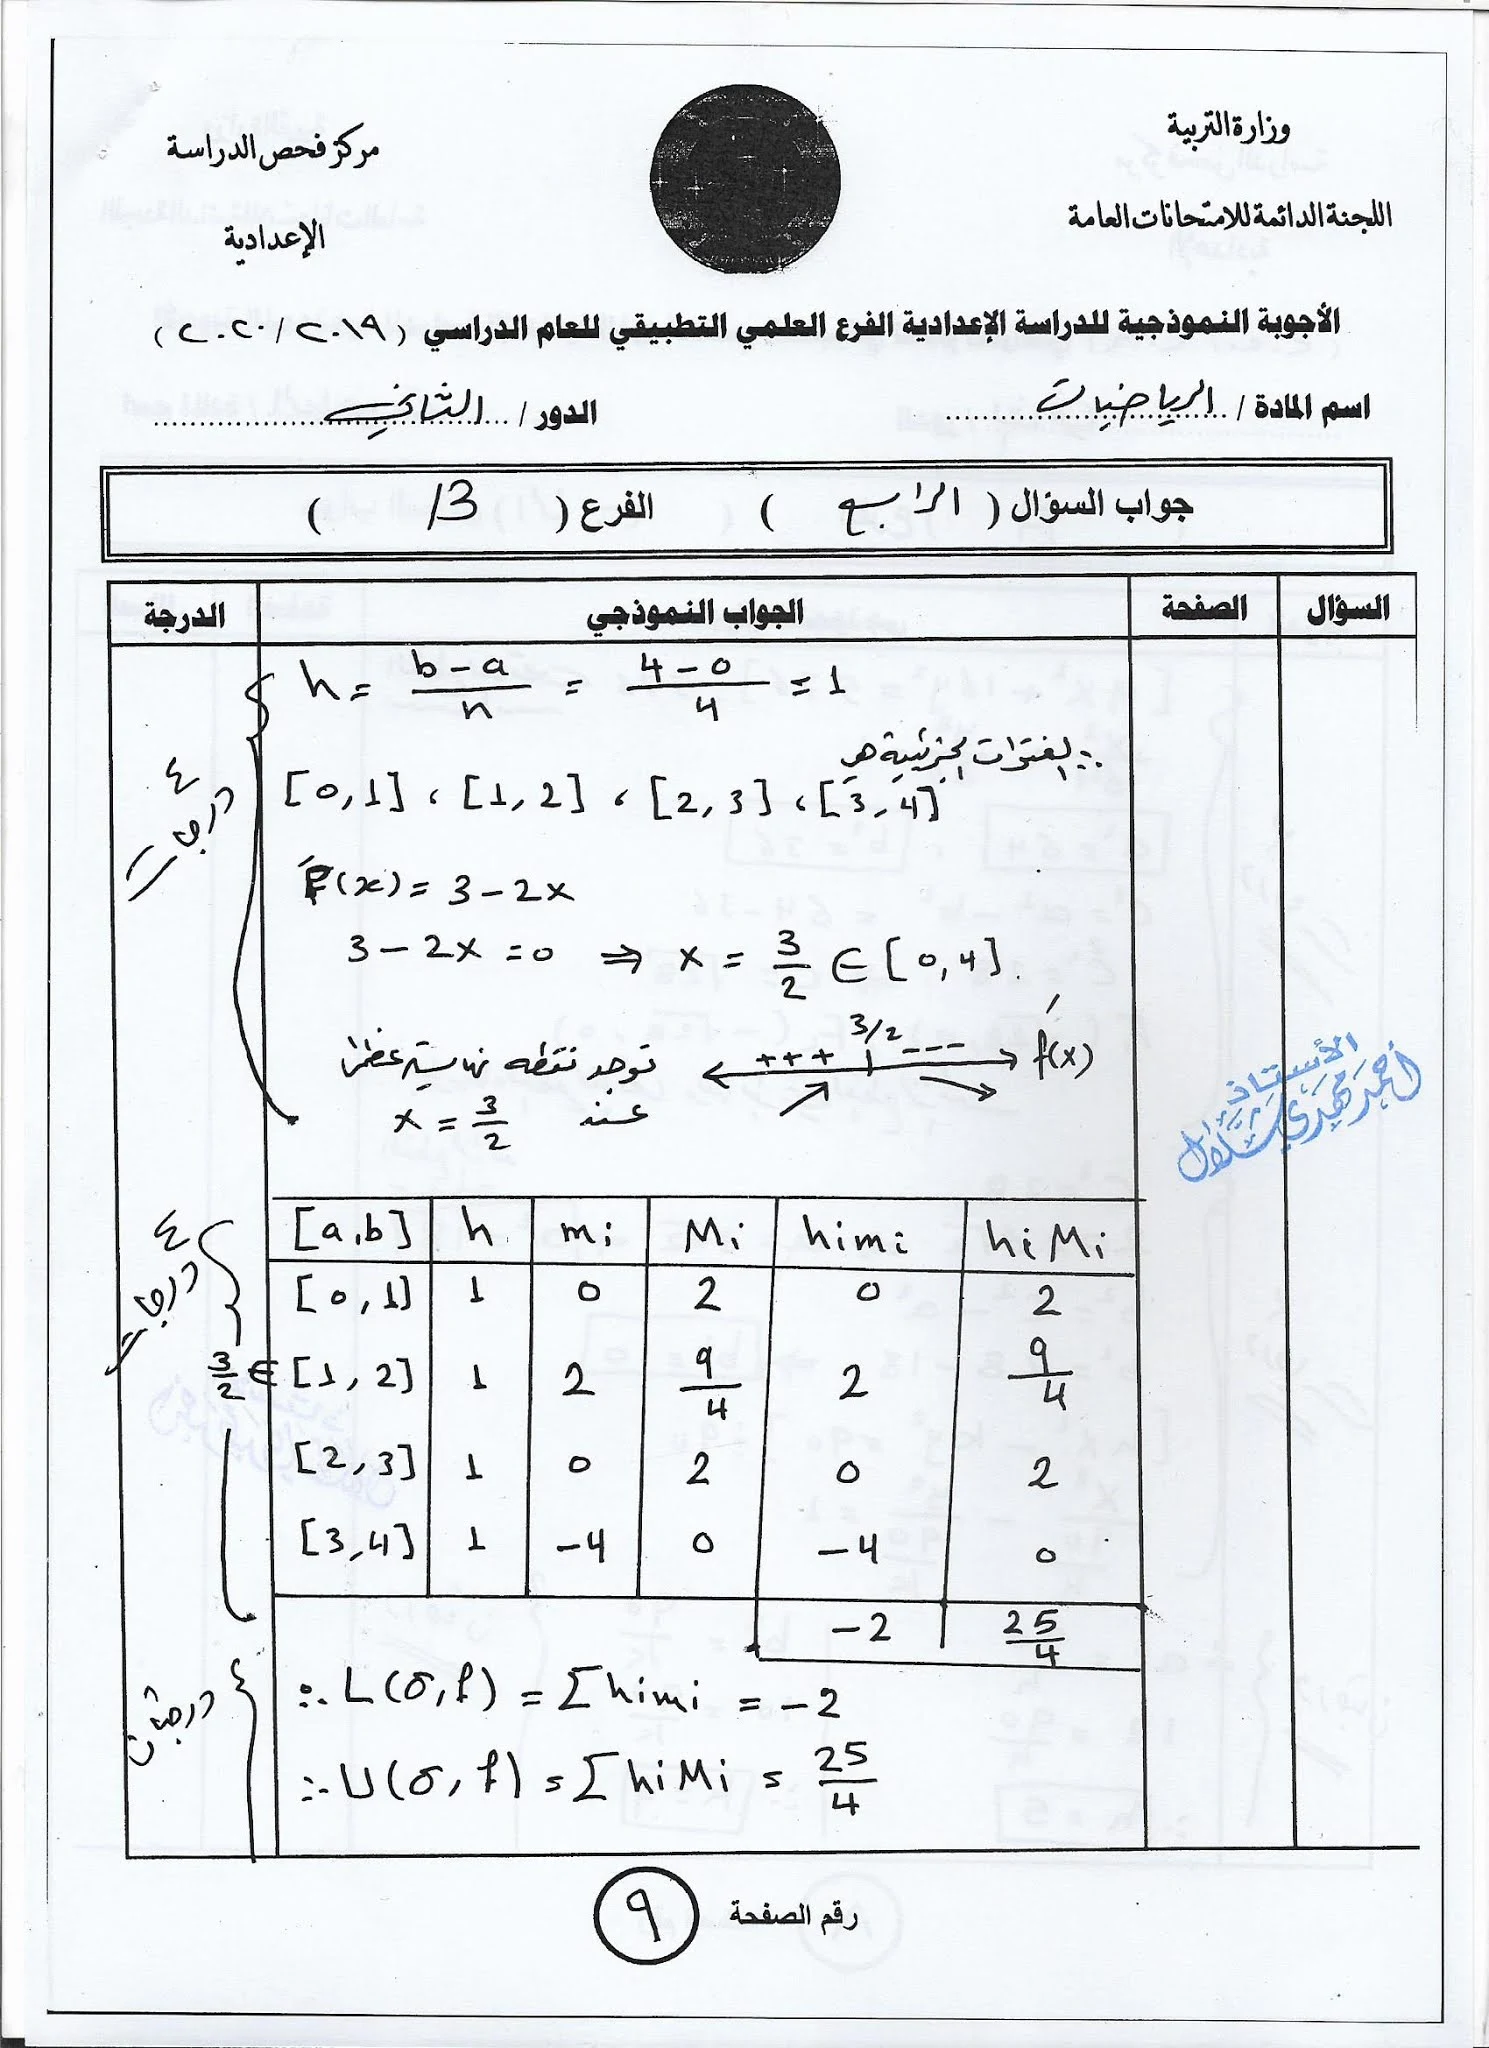 وزارة التربية
اللجنة الدائمة للامتحانات العامة
مركز فحص الدراسة
الإعدادية
الأجوبة النموذجية للدراسة الإعدادية الفرع العلمي التطبيقي للعام الدراسي (٢٠١٩/٢٠٢٠)
اسم المادة / الرياضيات الدور / الثاني
جواب السؤال ( الرابع ) الفرع ( /3 )
السؤال الصفحة الجواب النموذجي الدرجة
h = b-a/n = 4-0/4 = 1
∴ الفترات الجزئية هي
[0,1] ، [1,2] ، [2,3] ، [3,4]
٤ درجات
f́(x) = 3-2x
3-2x = 0 ⇒ x = 3/2 ∈ [0,4].
توجد نقطة نهاية عظمى +++ 3/2 --- f́(x)
عند x = 3/2
الأستاذ
أحمد مهدي شلال
[a,b] h mi Mi himi hiMi
[0,1] 1 0 2 0 2
٤ درجات
3/2 ∈ [1,2] 1 2 9/4 2 9/4
[2,3] 1 0 2 0 2
[3,4] 1 -4 0 -4 0
-2 25/4
∴ L(σ,f) = Σhimi = -2
∴ U(σ,f) = Σ hiMi = 25/4
رقم الصفحة ٩